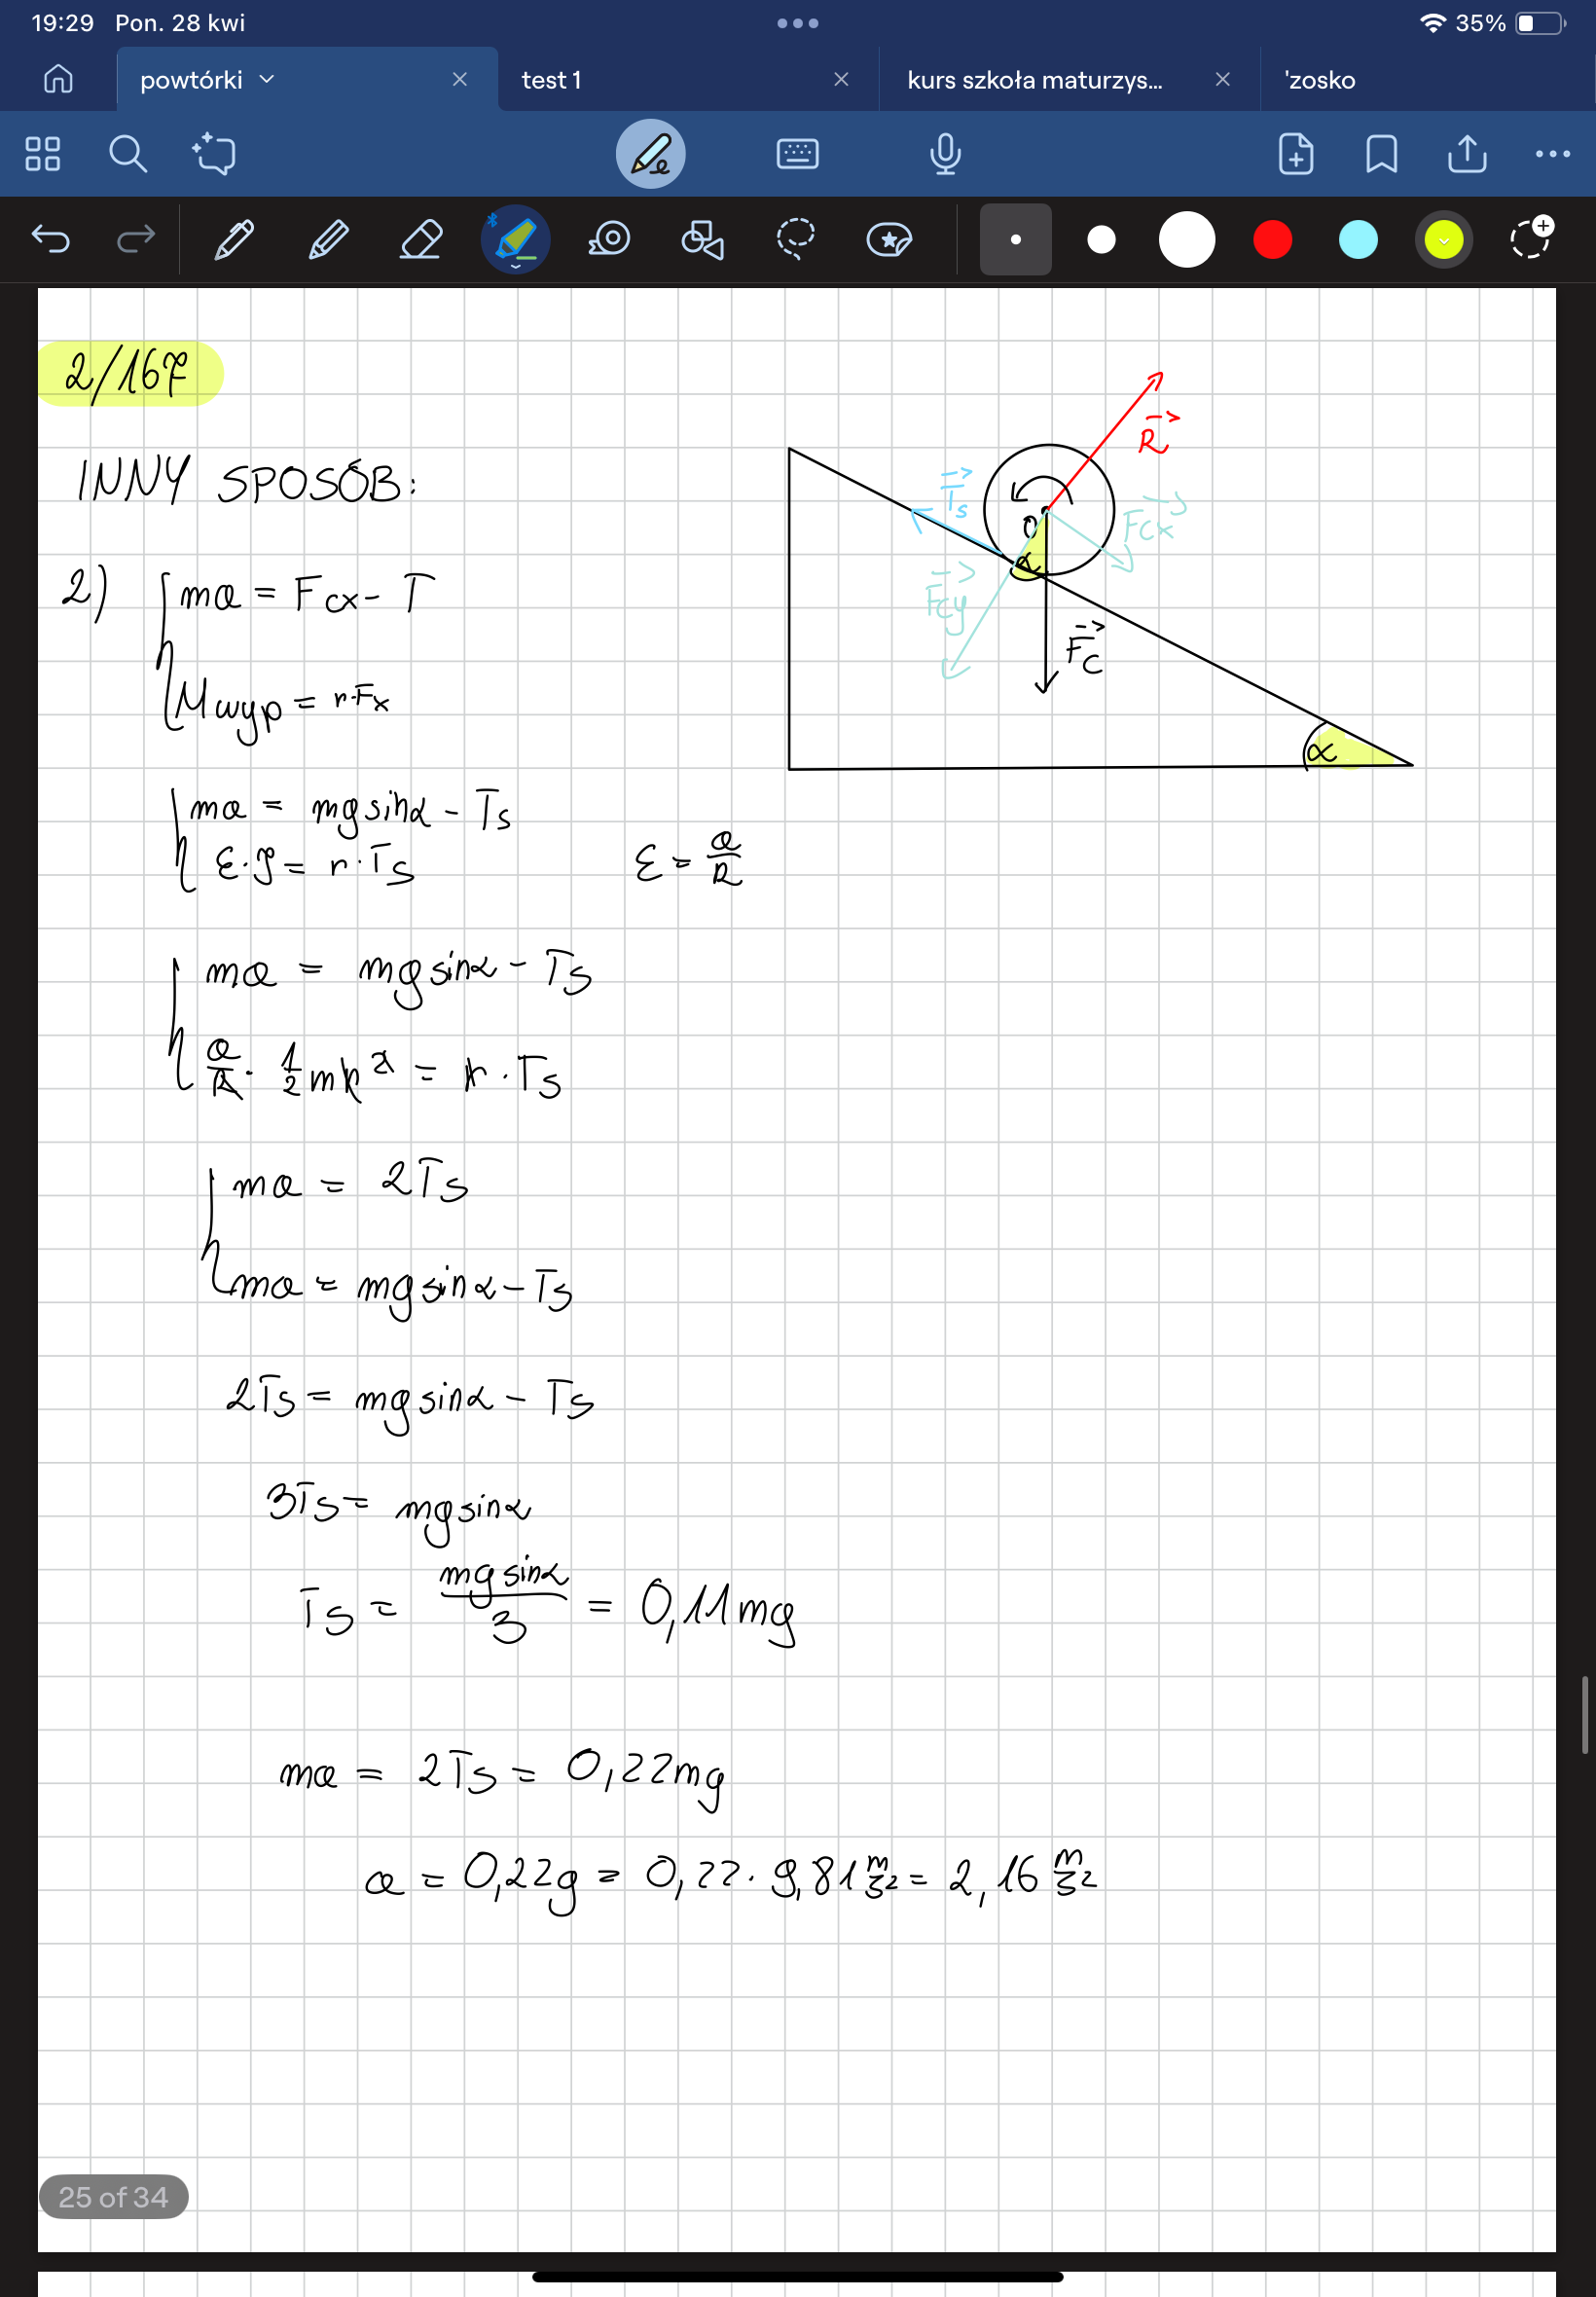 19:29 Pon. 28 kwi
35%
powtórki
test 1
kurs szkoła maturzys...
'zosko
2/167
INNY SPOSÓB:
R
Ts
0
Fcx
α
Fcy
Fc
α
2) ma = Fcx - T
Mwyp = r·Fx
ma = mg sinα - Ts
ε·J = r·Ts ε = a/R
ma = mg sinα - Ts
a/R · 1/2 mR² = r·Ts
ma = 2Ts
ma = mg sinα - Ts
2Ts = mg sinα - Ts
3Ts = mg sinα
Ts = mg sinα/3 = 0,11mg
ma = 2Ts = 0,22mg
a = 0,22g = 0,22·9,81 m/s² = 2,16 m/s²
25 of 34